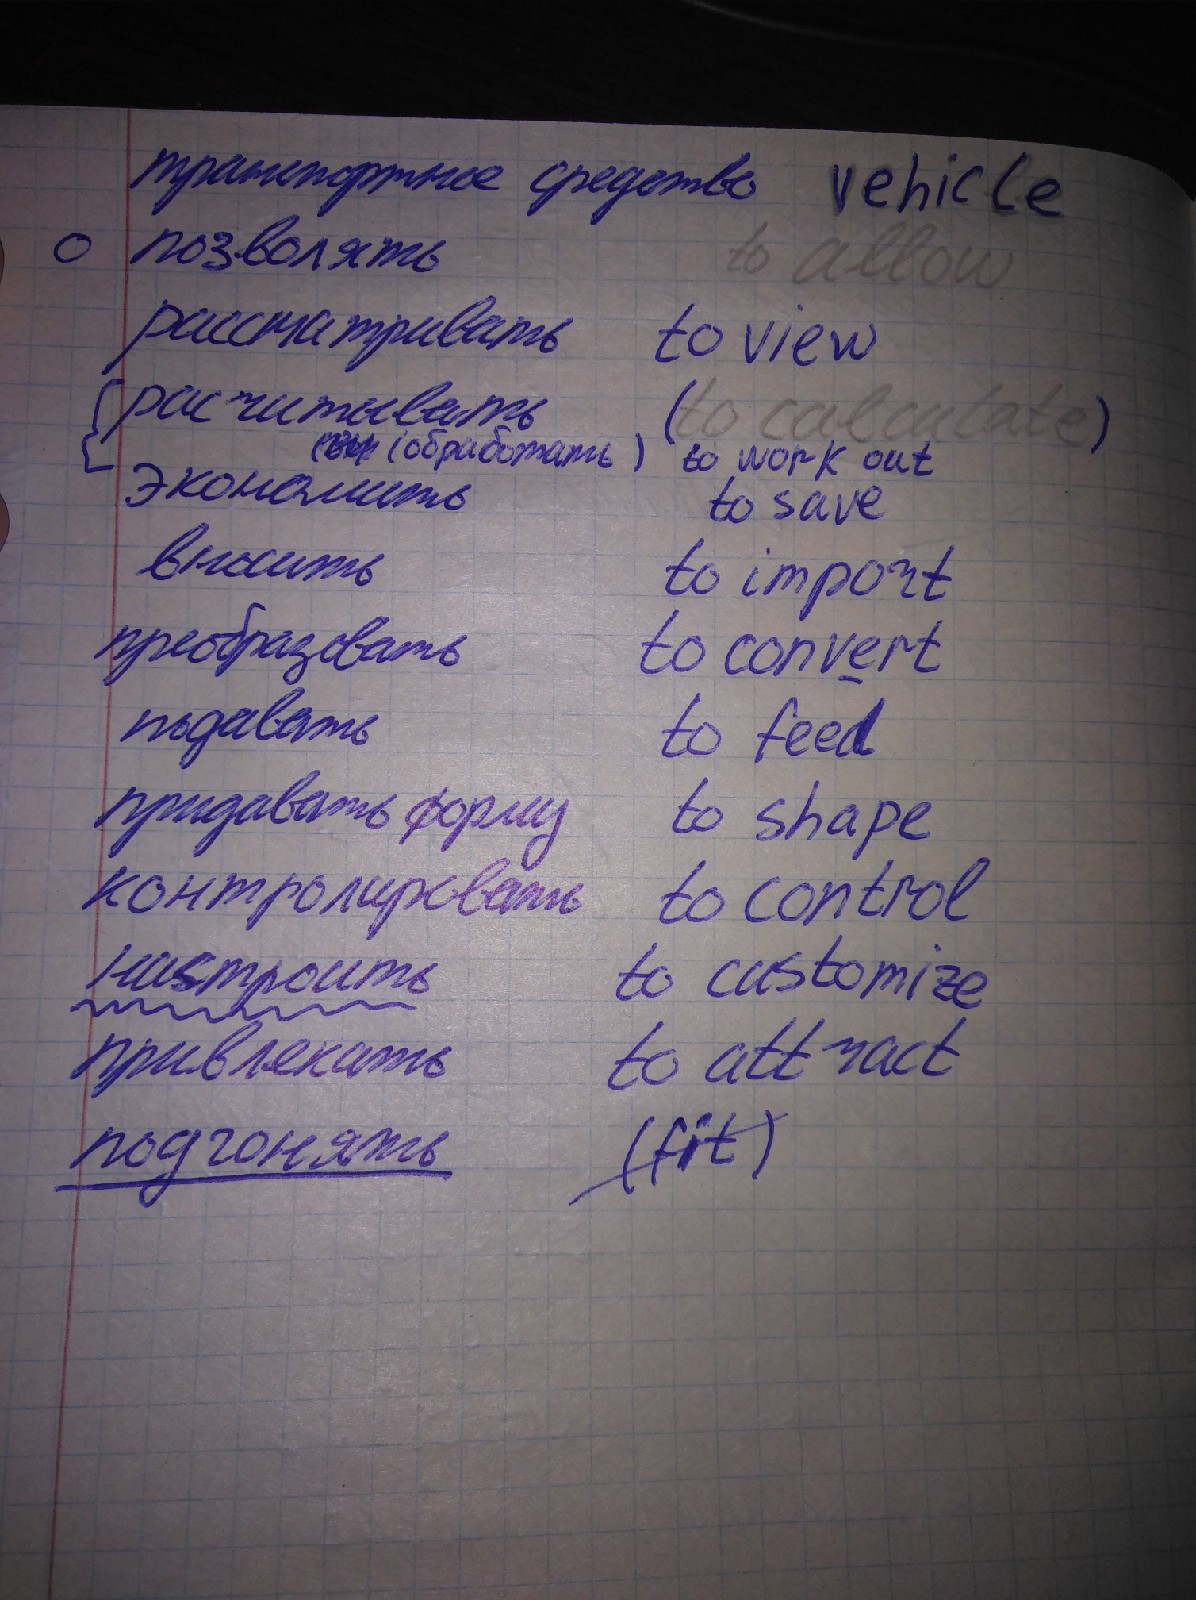 транспортное средство vehicle
позволять to allow
рассматривать to view
расчитывать (to calculate)
(обработать) to work out
экономить to save
вносить to import
преобразовать to convert
подавать to feed
придавать форму to shape
контролировать to control
настроить to customize
привлекать to attract
подгонять (fit)